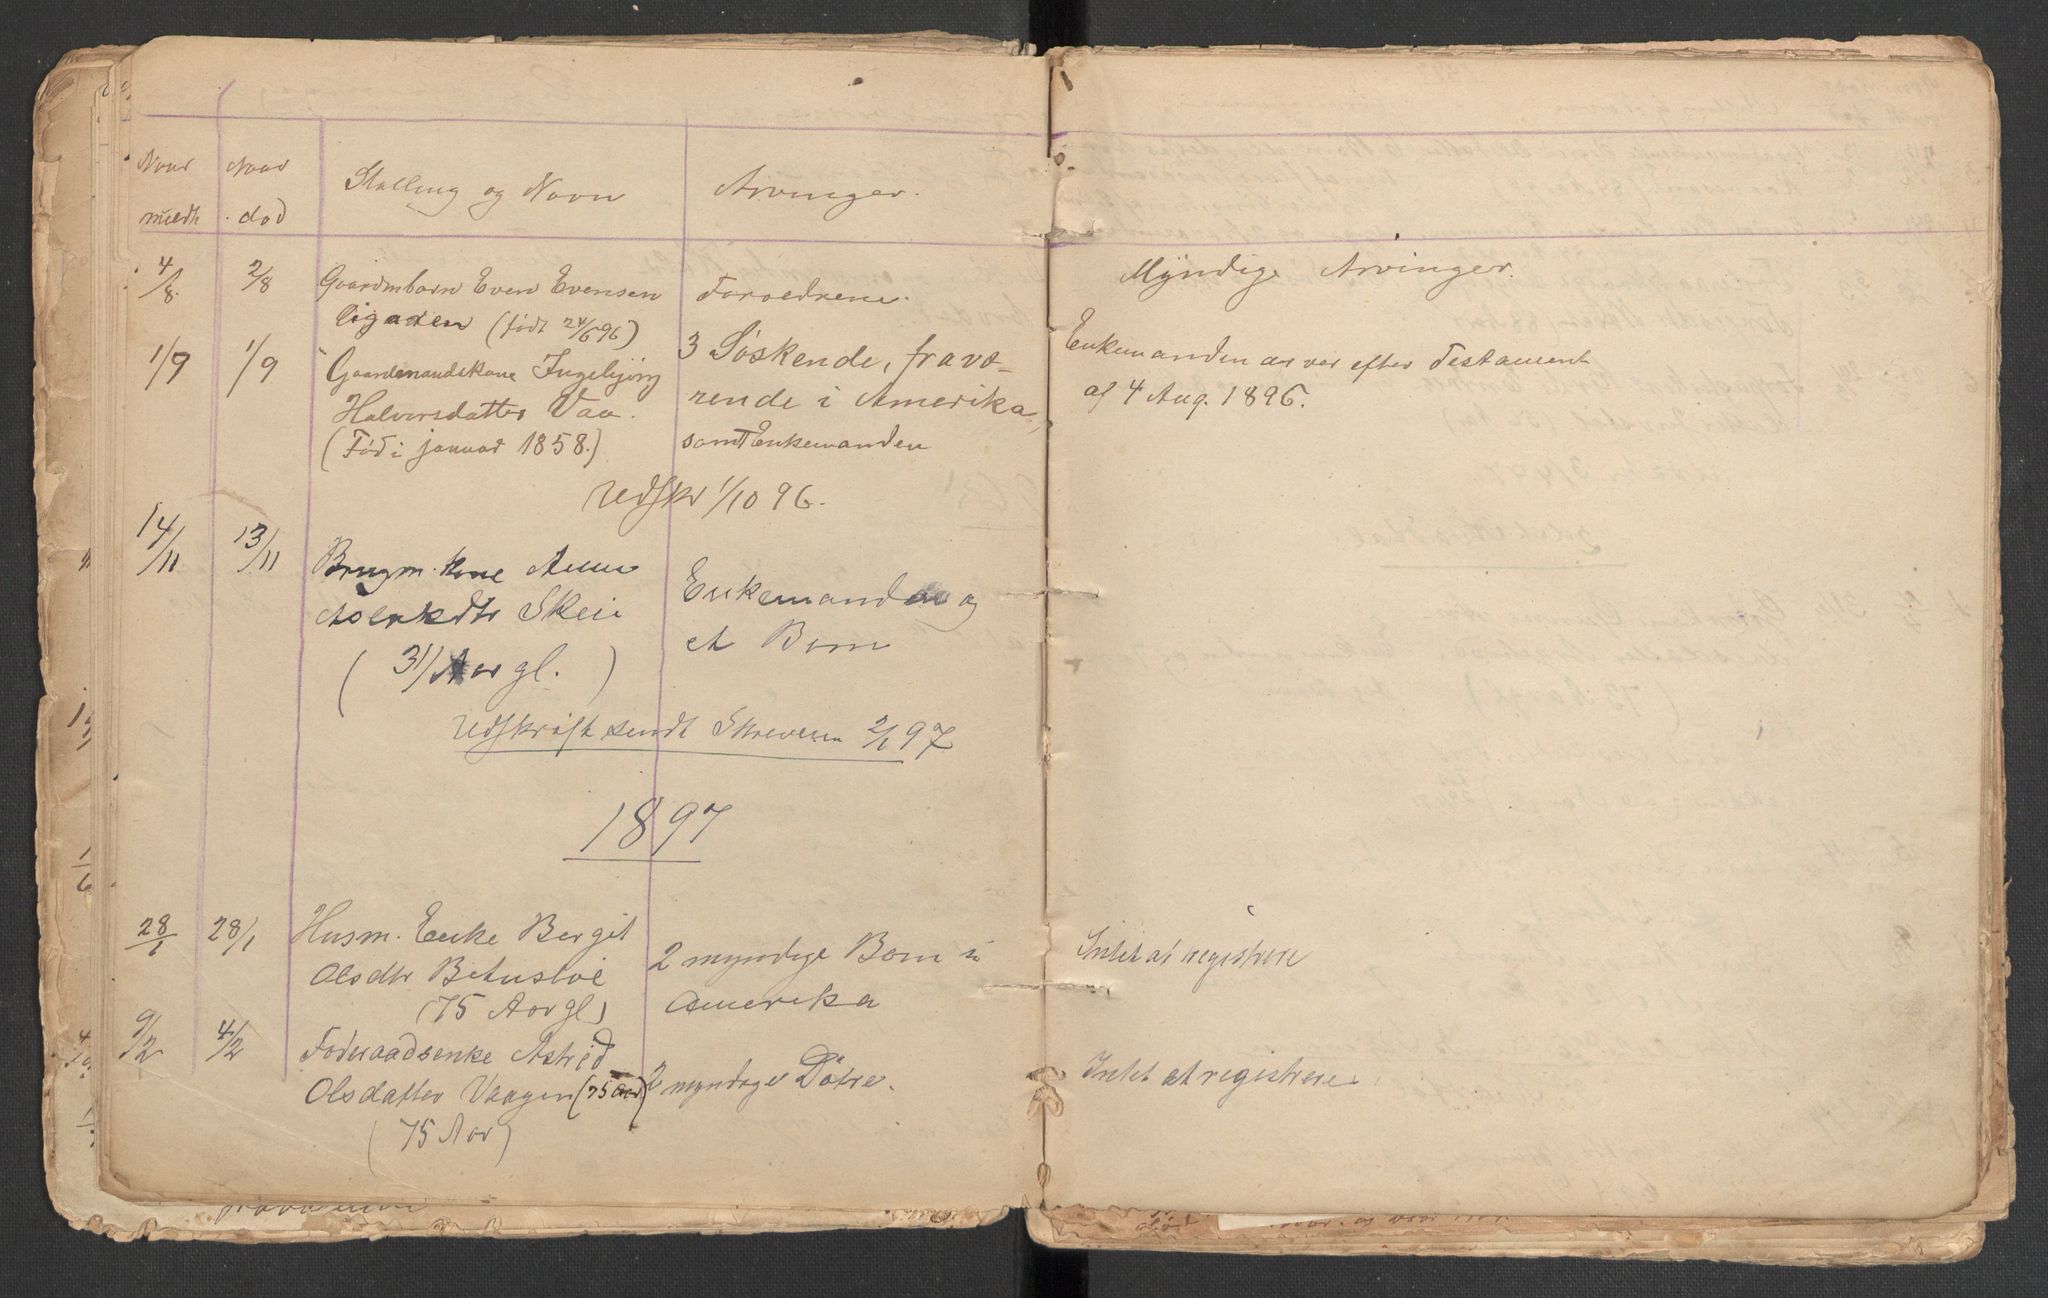 Naar Naar Stilling og Navn Arvinger.
meldt død
4/8 2/8 Gaardmbarn Even Evensen Forældrene. Myndige Arvinger.
(født 24/6 96)
1/9 1/9 Gaardmandskone Ingebjørg 3 Søskende, fravæ- Enkemanden arver efter Testament
Halvorsdatter Vaa. rende i Amerika, af 4 Aug. 1896.
(Fød i januar 1858.) samt Enkemanden
Udskr 1/10 96.
14/11 13/11 Brugm. kone Enkemanden og
Skeie et Barn
(31 Aar gl.)
Udskrift sendt Skriveren 2/1 97
1897
28/1 28/1 Husm. Enke Bergit 2 myndige Born i Intet at registrere
Olsdtr Amerika
(75 Aar gl)
9/2 4/2 Føderaadsenke Astrid
Olsdatter Vaagen (75 Aar) 2 myndige Døtre. Intet at registrere
(75 Aar)